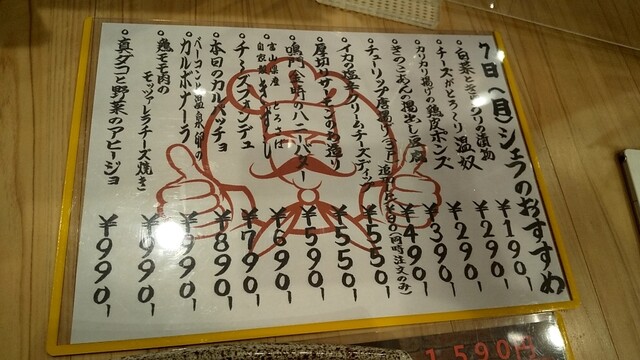 7日(月)シェフのおすすめ
白菜ときゅうりの漬物 ¥190
チーズがとろ〜り温奴 ¥290
カリカリ揚げの鶏皮ポンズ ¥290
きのこあんの揚出し豆腐 ¥390
チューリップ唐揚げ(3P)追加1P¥90(同時注文のみ) ¥490
イカの塩辛クリームチーズディップ ¥550
厚切りサーモンのお造り ¥550
鳴門金時のハニーバター ¥590
富山県産 とろさば
自家製 ¥690
チーズフォンデュ ¥790
本日のカルパッチョ ¥890
ベーコンと温泉卵の
カルボナーラ ¥990
鶏モモ肉の
モッツァレラチーズ焼き ¥990
真ダコと野菜のアヒージョ ¥990
1,590円